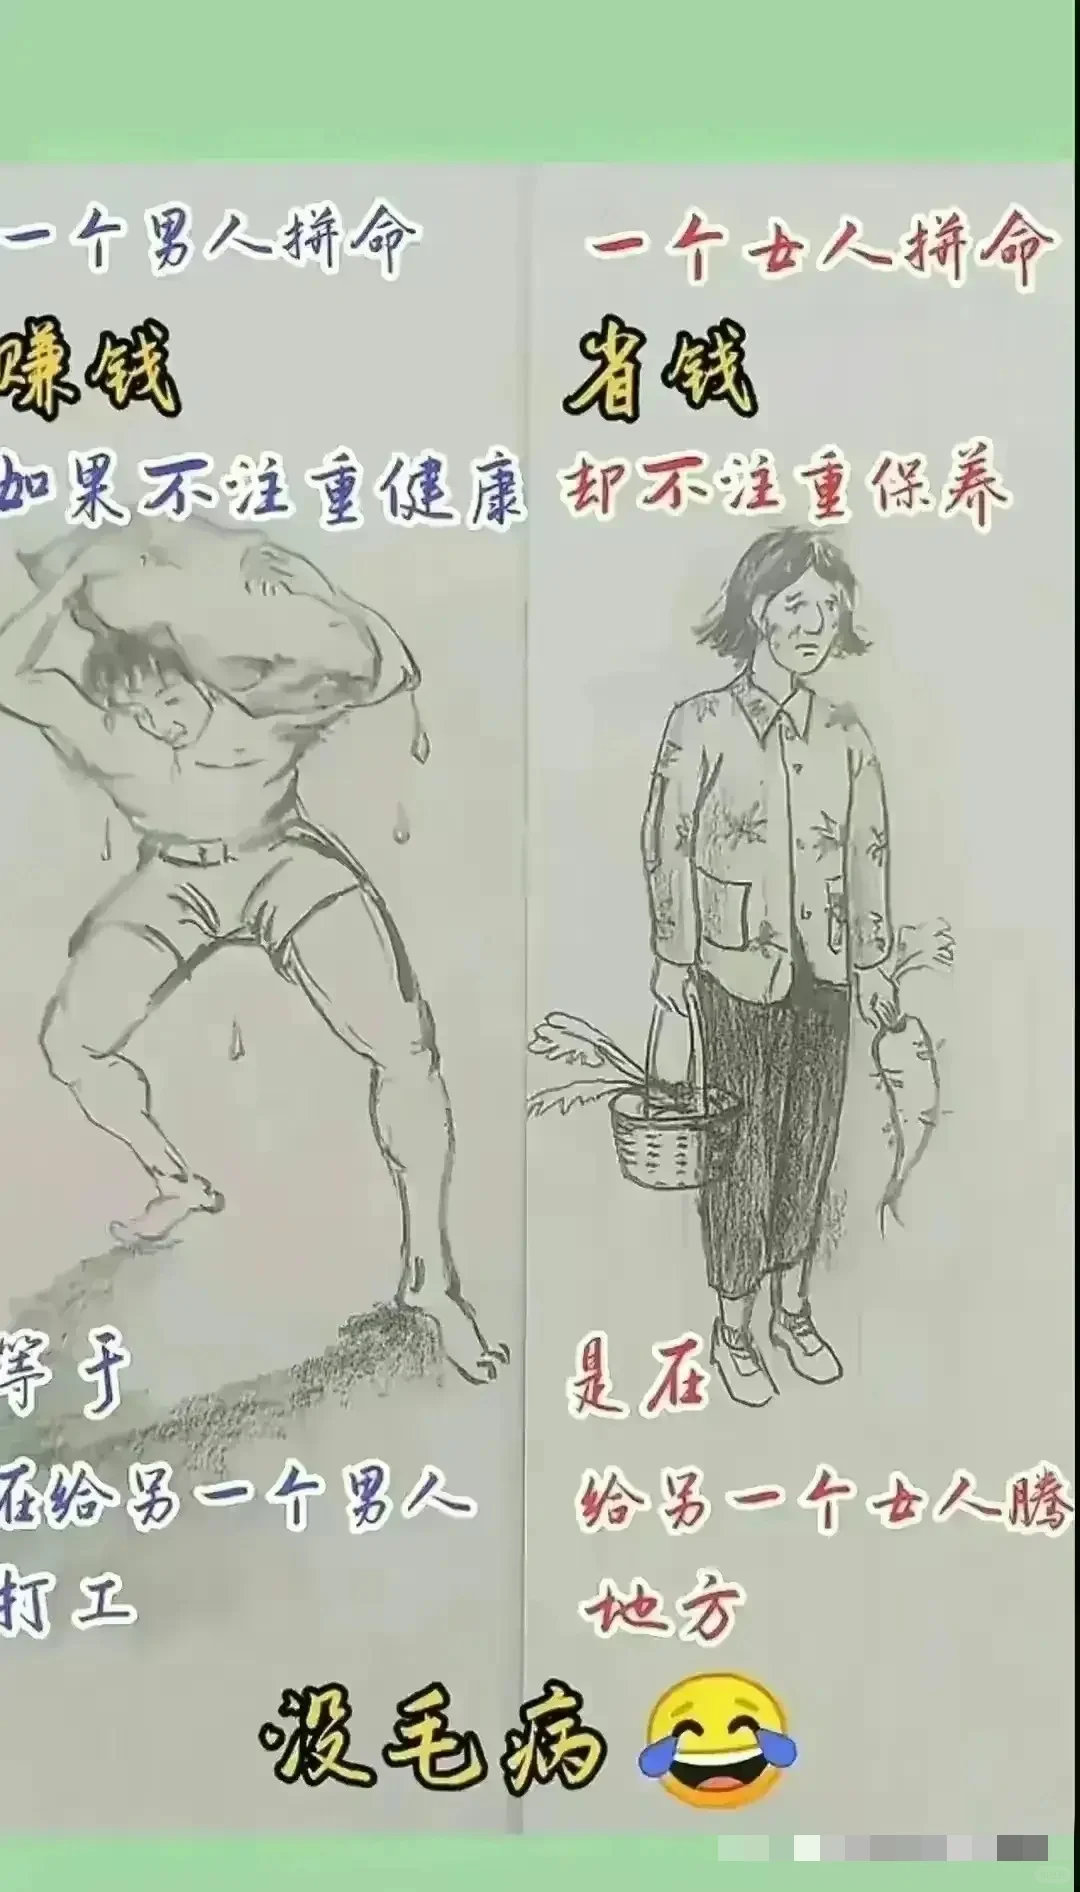 一个男人拼命
赚钱
如果不注重健康
等于
在给另一个男人
打工
一个女人拼命
省钱
却不注重保养
是在
给另一个女人腾
地方
没毛病